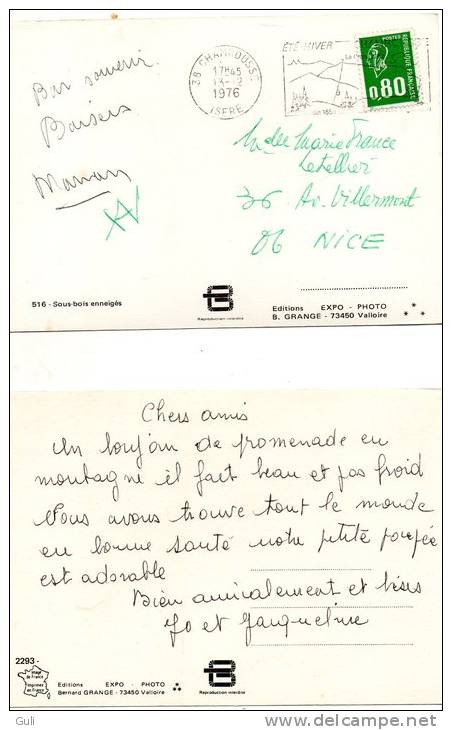 38 CHAMROUSSE
17H45
13-2
1976
ISERE
ÉTÉ-HIVER
POSTES
0,80
REPUBLIQUE FRANÇAISE
Bon souvenir
Baisers
Maman
Melle Marie France
Letellier
36 Av. Villermont
06 NICE
516 - Sous-bois enneigés
Reproduction interdite
Editions EXPO - PHOTO
B. GRANGE - 73450 Valloire
Chers amis
Un bonjour de promenade en
montagne il fait beau et pas froid
Nous avons trouvé tout le monde
en bonne santé notre petite poupée
est adorable
Bien amicalement et bises
Jo et Jacqueline
2293 -
Image
de France
Imprimée
en France
Editions EXPO - PHOTO
Bernard GRANGE - 73450 Valloire
Reproduction interdite
Guli
http://www.delcampe.net